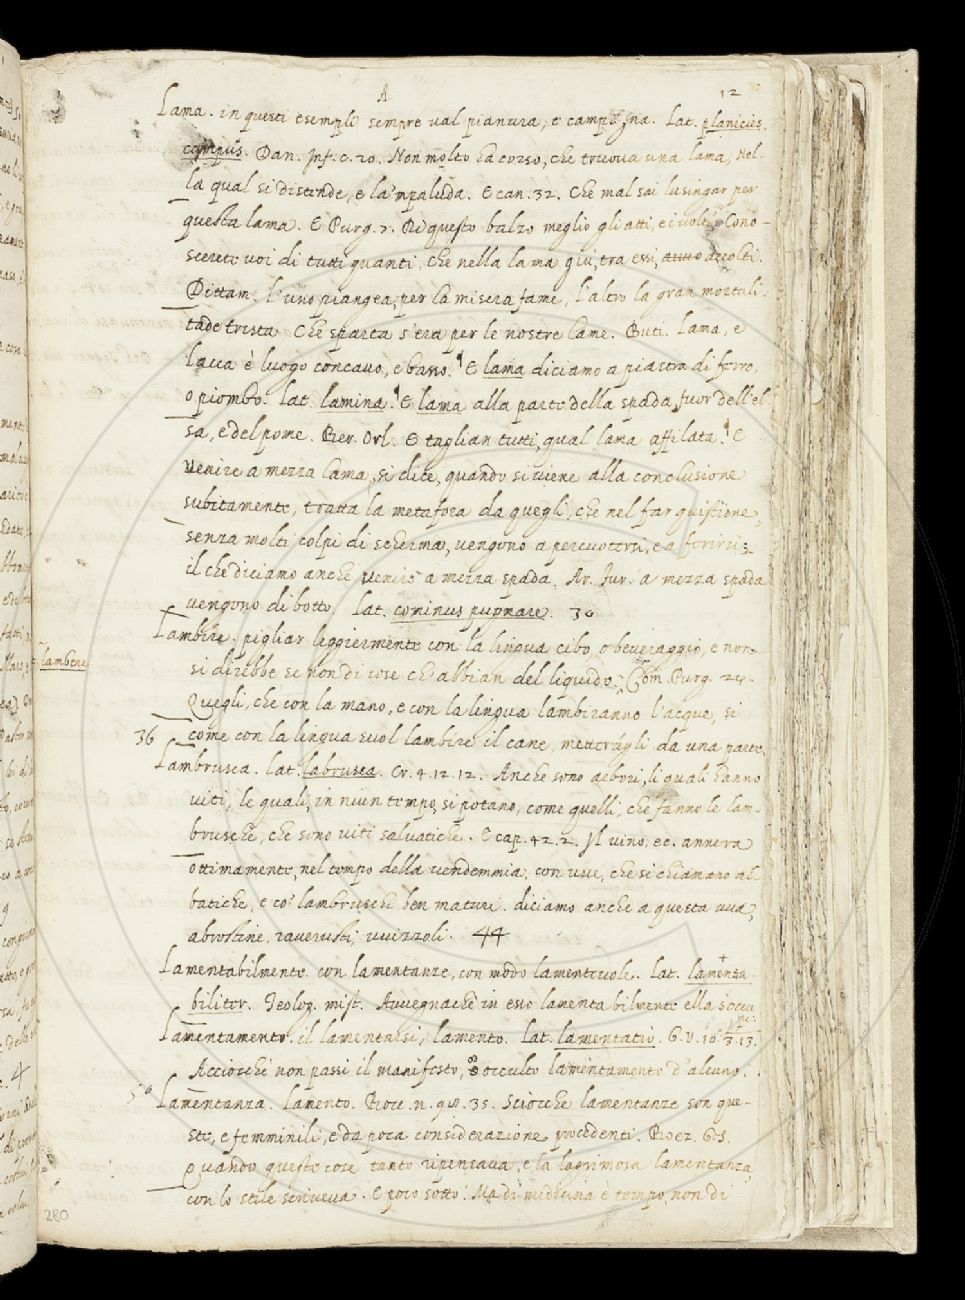 A 12
Lama. in questi esempli sempre val pianura, e campagna. Lat. planicies,
campus. Dan. Inf. c. 20. Non molto ha corso, che truova una lama, Nel-
la qual si distende, e la 'mpaluda. E can. 32. Che mal sai lusingar per
questa lama. E Purg. 7. Di questo balzo meglio gli atti, e i volti Cono-
scerete voi di tutti quanti, che nella lama giù, tra essi, accolti.
Dittam. l'uno piangea, per la misera fame, l'altro la gran mortali-
tade trista Che sparta s'era per le nostre lame. Buti. Lama, e
lacca è luogo concavo, e basso. E lama diciamo a piastra di ferro,
o piombo. lat. lamina. E lama alla parte della spada, fuor dell'el
sa, e del pome. Ber. Orl. E taglian tutti, qual lama affilata. E
venire a mezza lama, si dice, quando si viene alla conclusione
subitamente, tratta la metafora da quegli, che nel far quistione,
senza molti colpi di scherma, vengono a percuotersi, e a ferirsi:
il che diciamo anche venire a mezza spada. Ar. Fur. a mezza spada
vengono di botto. Lat. cominus pugnare. 30
Lambire. pigliar leggiermente con la lingua cibo, o beveraggio, e non
lambere
si direbbe se non di cose ch'abbian del liquido. Com. Purg. 24.
Quegli, che con la mano, e con la lingua lambiranno l'acque, si
36 come con la lingua suol lambire il cane, metterágli da una parte.
Lambrusca. lat. labrusca. Cr. 4. 12. 12. Anche sono arbori, li quali hanno
viti, le quali, in niun tempo, si potano, come quelli, che fanno le lam-
brusche, che sono viti salvatiche. E cap. 42. 2. Il vino, ec. annera
ottimamente, nel tempo della vendemmia, con uve, che si chiamano al-
batiche, e co' lambruschi ben maturi. diciamo anche a questa uva,
abrostine, raverusti, uvizzoli. 44
Lamentabilmente. con lamentanze, con modo lamentevole. Lat. lamenta-
biliter. Teolog. mist. Avvegnachè in esso lamentabilmente ella
Lamentamento. il lamentarsi, lamento. Lat. lamentatio. G. V. 10. 3. 13.
Acciocchè non passi il manifesto, o occulto lamentamento d'alcuno.
50 Lamentanza. lamento. Bocc. n. 98. 35. Sciocche lamentanze son que-
ste, e femminili, e da poca considerazione procedenti. Boez.
Quando queste cose tanto ripensava, e la lagrimosa lamentanza
con lo stile scriveva. E poco sotto: Ma di medicina è tempo, non di
280